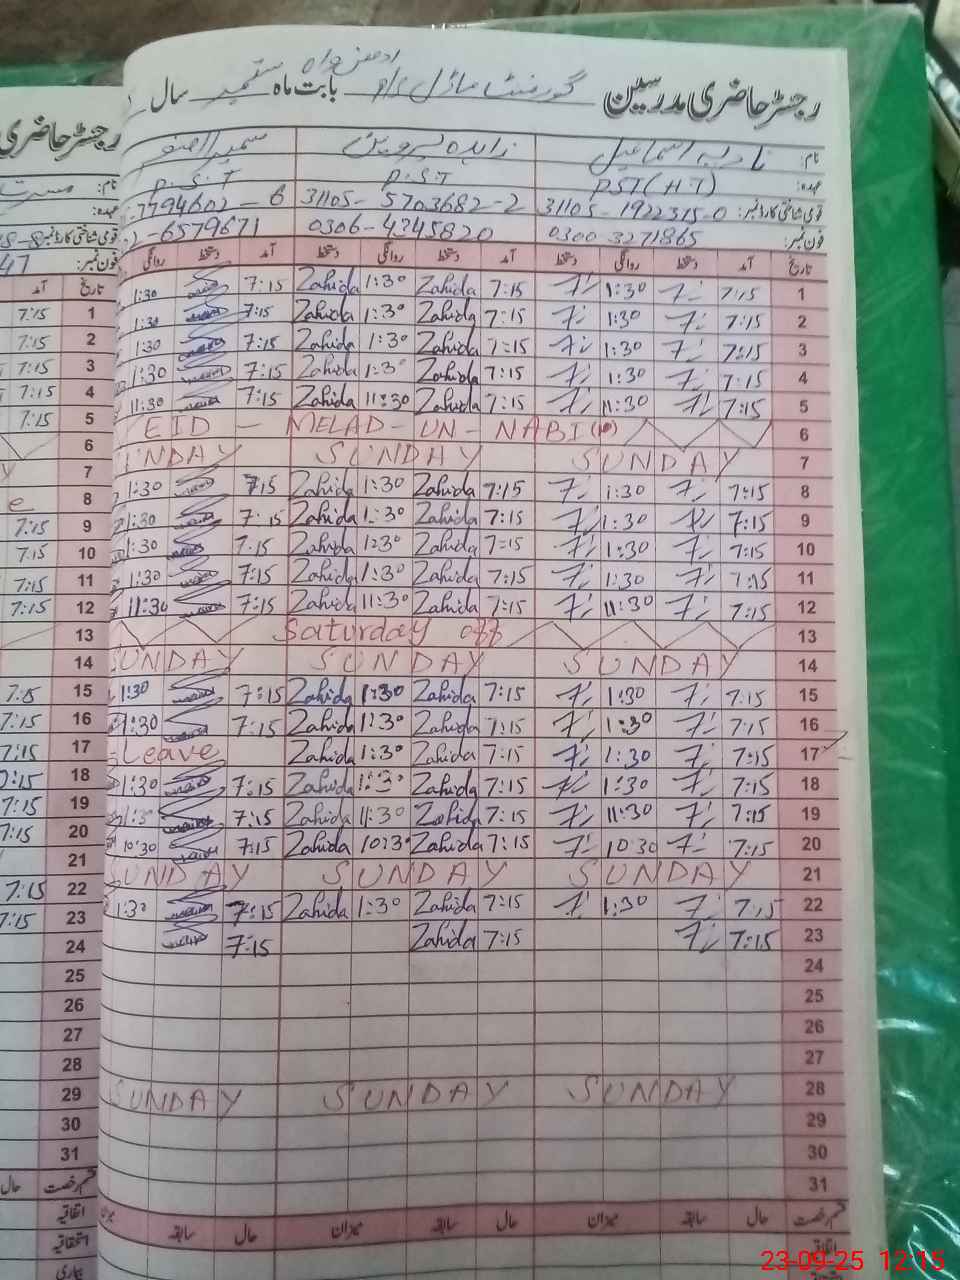 رجسٹر حاضری مدرسین گورنمنٹ ماڈل بابت ماہ ستمبر سال
نام: نادیہ اسماعیل زاہدہ پروین
عہدہ: PST (HT) P.S.T P.S.T
قومی شناختی کارڈ نمبر: 31105-1922315-0 31105-5703682-2 7794602-6
فون نمبر: 0300 3271865 0306-4245820 2-6579671
تاریخ آمد دستخط روانگی دستخط آمد دستخط روانگی دستخط آمد دستخط روانگی
1 7:15 1:30 7:15 Zahida 1:30 Zahida 7:15 1:30
2 7:15 1:30 7:15 Zahida 1:30 Zahida 7:15 1:30
3 7:15 1:30 7:15 Zahida 1:30 Zahida 7:15 1:30
4 7:15 1:30 7:15 Zahida 1:30 Zahida 7:15 1:30
5 7:15 11:30 7:15 Zahida 11:30 Zahida 7:15 11:30
6 EID - MELAD - UN - NABI
7 SUNDAY SUNDAY UNDAY
8 7:15 1:30 7:15 Zahida 1:30 Zahida 7:15 1:30
9 7:15 1:30 7:15 Zahida 1:30 Zahida 7:15 1:30
10 7:15 1:30 7:15 Zahida 1:30 Zahida 7:15 1:30
11 7:15 1:30 7:15 Zahida 1:30 Zahida 7:15 1:30
12 7:15 11:30 7:15 Zahida 11:30 Zahida 7:15 11:30
13 Saturday off
14 SUNDAY SUNDAY SUNDAY
15 7:15 1:30 7:15 Zahida 1:30 Zahida 7:15 1:30
16 7:15 1:30 7:15 Zahida 1:30 Zahida 7:15 1:30
17 7:15 1:30 7:15 Zahida 1:30 Zahida Leave
18 7:15 1:30 7:15 Zahida 1:30 Zahida 7:15 1:30
19 7:15 11:30 7:15 Zahida 11:30 Zahida 7:15
20 7:15 10:30 7:15 Zahida 10:30 Zahida 7:15 10:30
21 SUNDAY SUNDAY SUNDAY
22 7:15 1:30 7:15 Zahida 1:30 Zahida 7:15 1:30
23 7:15 7:15 Zahida 7:15
24
25
26
27
28 SUNDAY SUNDAY SUNDAY
29
30
31
قسم رخصت حال سابقہ میزان حال سابقہ میزان حال سابقہ
اتفاقیہ
رجسٹر حاضری
نام:
عہدہ:
قومی شناختی کارڈ نمبر:
فون نمبر: 47
تاریخ آمد
1 7:15
2 7:15
3 7:15
4 7:15
5 7:15
6
7
8
9 7:15
10 7:15
11 7:15
12 7:15
13
14
15 7:15
16 7:15
17 7:15
18 7:15
19 7:15
20 7:15
21
22 7:15
23 7:15
24
25
26
27
28
29
30
31
قسم رخصت حال
اتفاقیہ
استحقاقیہ
بیماری
23-09-25 12:15